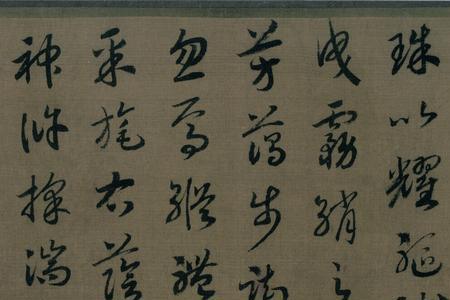 珠以耀軀
曳霧綃之
芳藹步踟
忽焉縱體
采旄右蔭
神滸採湍